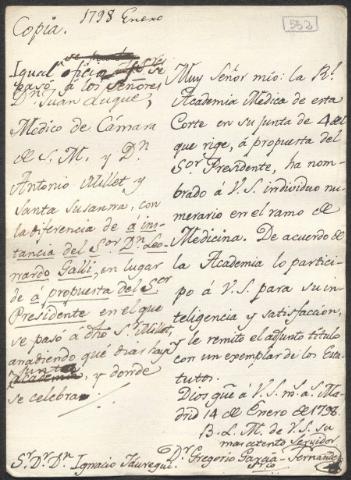 Copia.
1798 Enero
553
Igual oficio se
pasó á los Señores
Dn. Juan Luque,
Medico de Cámara
de S. M. y Dn.
Antonio Millet y
Santa Susanna, con
la diferencia de á ins-
tancia del Sor. Dn. Leo-
nardo Galli, en lugar
de á propuesta del Sor.
Presidente en el que
se pasó á dho Sr. Millet,
añadiendo que dias hay
Junta
y donde
se celebra.
Muy Señor mio: la Rl.
Academia Medica de esta
Corte en su junta de 4 del
que rige, á propuesta del
Sor. Presidente, ha nom-
brado á V. S. individuo nu-
merario en el ramo de
Medicina. De acuerdo de
la Academia lo partici-
po á V. S. para su in-
teligencia y satisfaccion,
y le remito el adjunto titulo
con un exemplar de los Esta-
tutos.
Dios gue. á V. S. m. a. Ma-
drid 14 de Enero de 1798.
B. L. M. de V. S. su
mas atento servidor
Dr. Gregorio Garcia Fernandez
Srio
Sr. Dr. Dn. Ignacio Jauregui